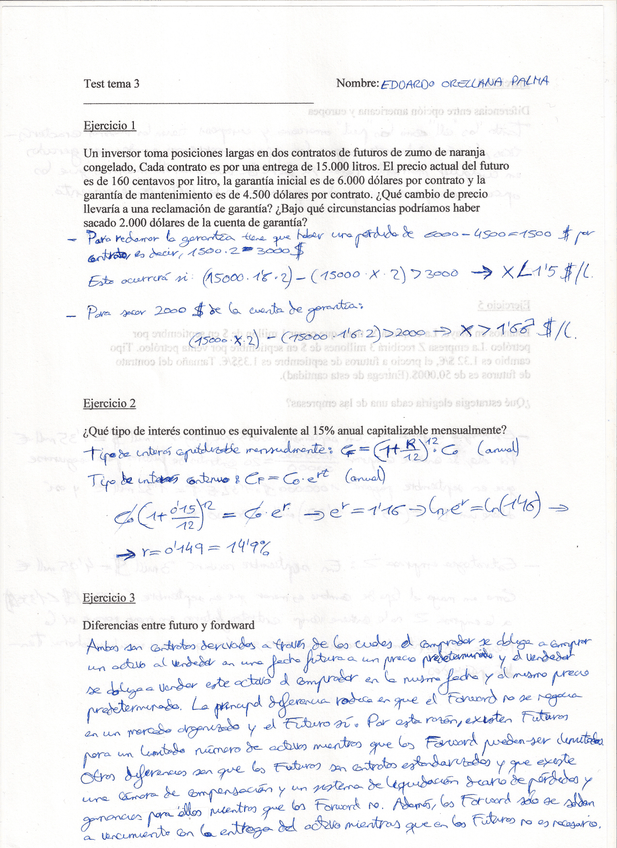 Test tema 3 Nombre: EDOARDO ORELLANA PALMA
Ejercicio 1
Un inversor toma posiciones largas en dos contratos de futuros de zumo de naranja
congelado, Cada contrato es por una entrega de 15.000 litros. El precio actual del futuro
es de 160 centavos por litro, la garantía inicial es de 6.000 dólares por contrato y la
garantía de mantenimiento es de 4.500 dólares por contrato. ¿Qué cambio de precio
llevaría a una reclamación de garantía? ¿Bajo qué circunstancias podríamos haber
sacado 2.000 dólares de la cuenta de garantía?
- Para reclamar la garantía tiene que haber una pérdida de 6000-4500=1500 $ por
contrato, es decir, 1500·2=3000$
Esto ocurrirá si: (15000·1'6·2)-(15000·X·2)>3000 → X<1'5 $/L.
- Para sacar 2000 $ de la cuenta de garantía:
(15000·X·2)-(15000·1'6·2)>2000 → X>1'66 $/L.
Ejercicio 2
¿Qué tipo de interés continuo es equivalente al 15% anual capitalizable mensualmente?
Tipo de interés capitalizable mensualmente: CF=(1+R/12)^12·C0 (anual)
Tipo de interés continuo: CF=C0·e^rt (anual)
C0(1+0'15/12)^12=C0·e^r → e^r=1'16 → Ln e^r=Ln(1'16) →
→ r=0'149=14'9%
Ejercicio 3
Diferencias entre futuro y fordward
Ambos son contratos derivados a través de los cuales el comprador se obliga a comprar
un activo al vendedor en una fecha futura a un precio predeterminado y el vendedor
se obliga a vender este activo al comprador en la misma fecha y al mismo precio
predeterminado. La principal diferencia radica en que el Forward no se negocia
en un mercado organizado y el Futuro sí. Por esta razón, existen Futuros
para un limitado número de activos mientras que los Forward pueden ser ilimitados.
Otras diferencias son que los Futuros son contratos estandarizados y que existe
una cámara de compensación y un sistema de liquidación diario de pérdidas y
ganancias para ellos mientras que los Forward no. Además, los Forward sólo se saldan
a vencimiento con la entrega del activo mientras que en los Futuros no es necesario.